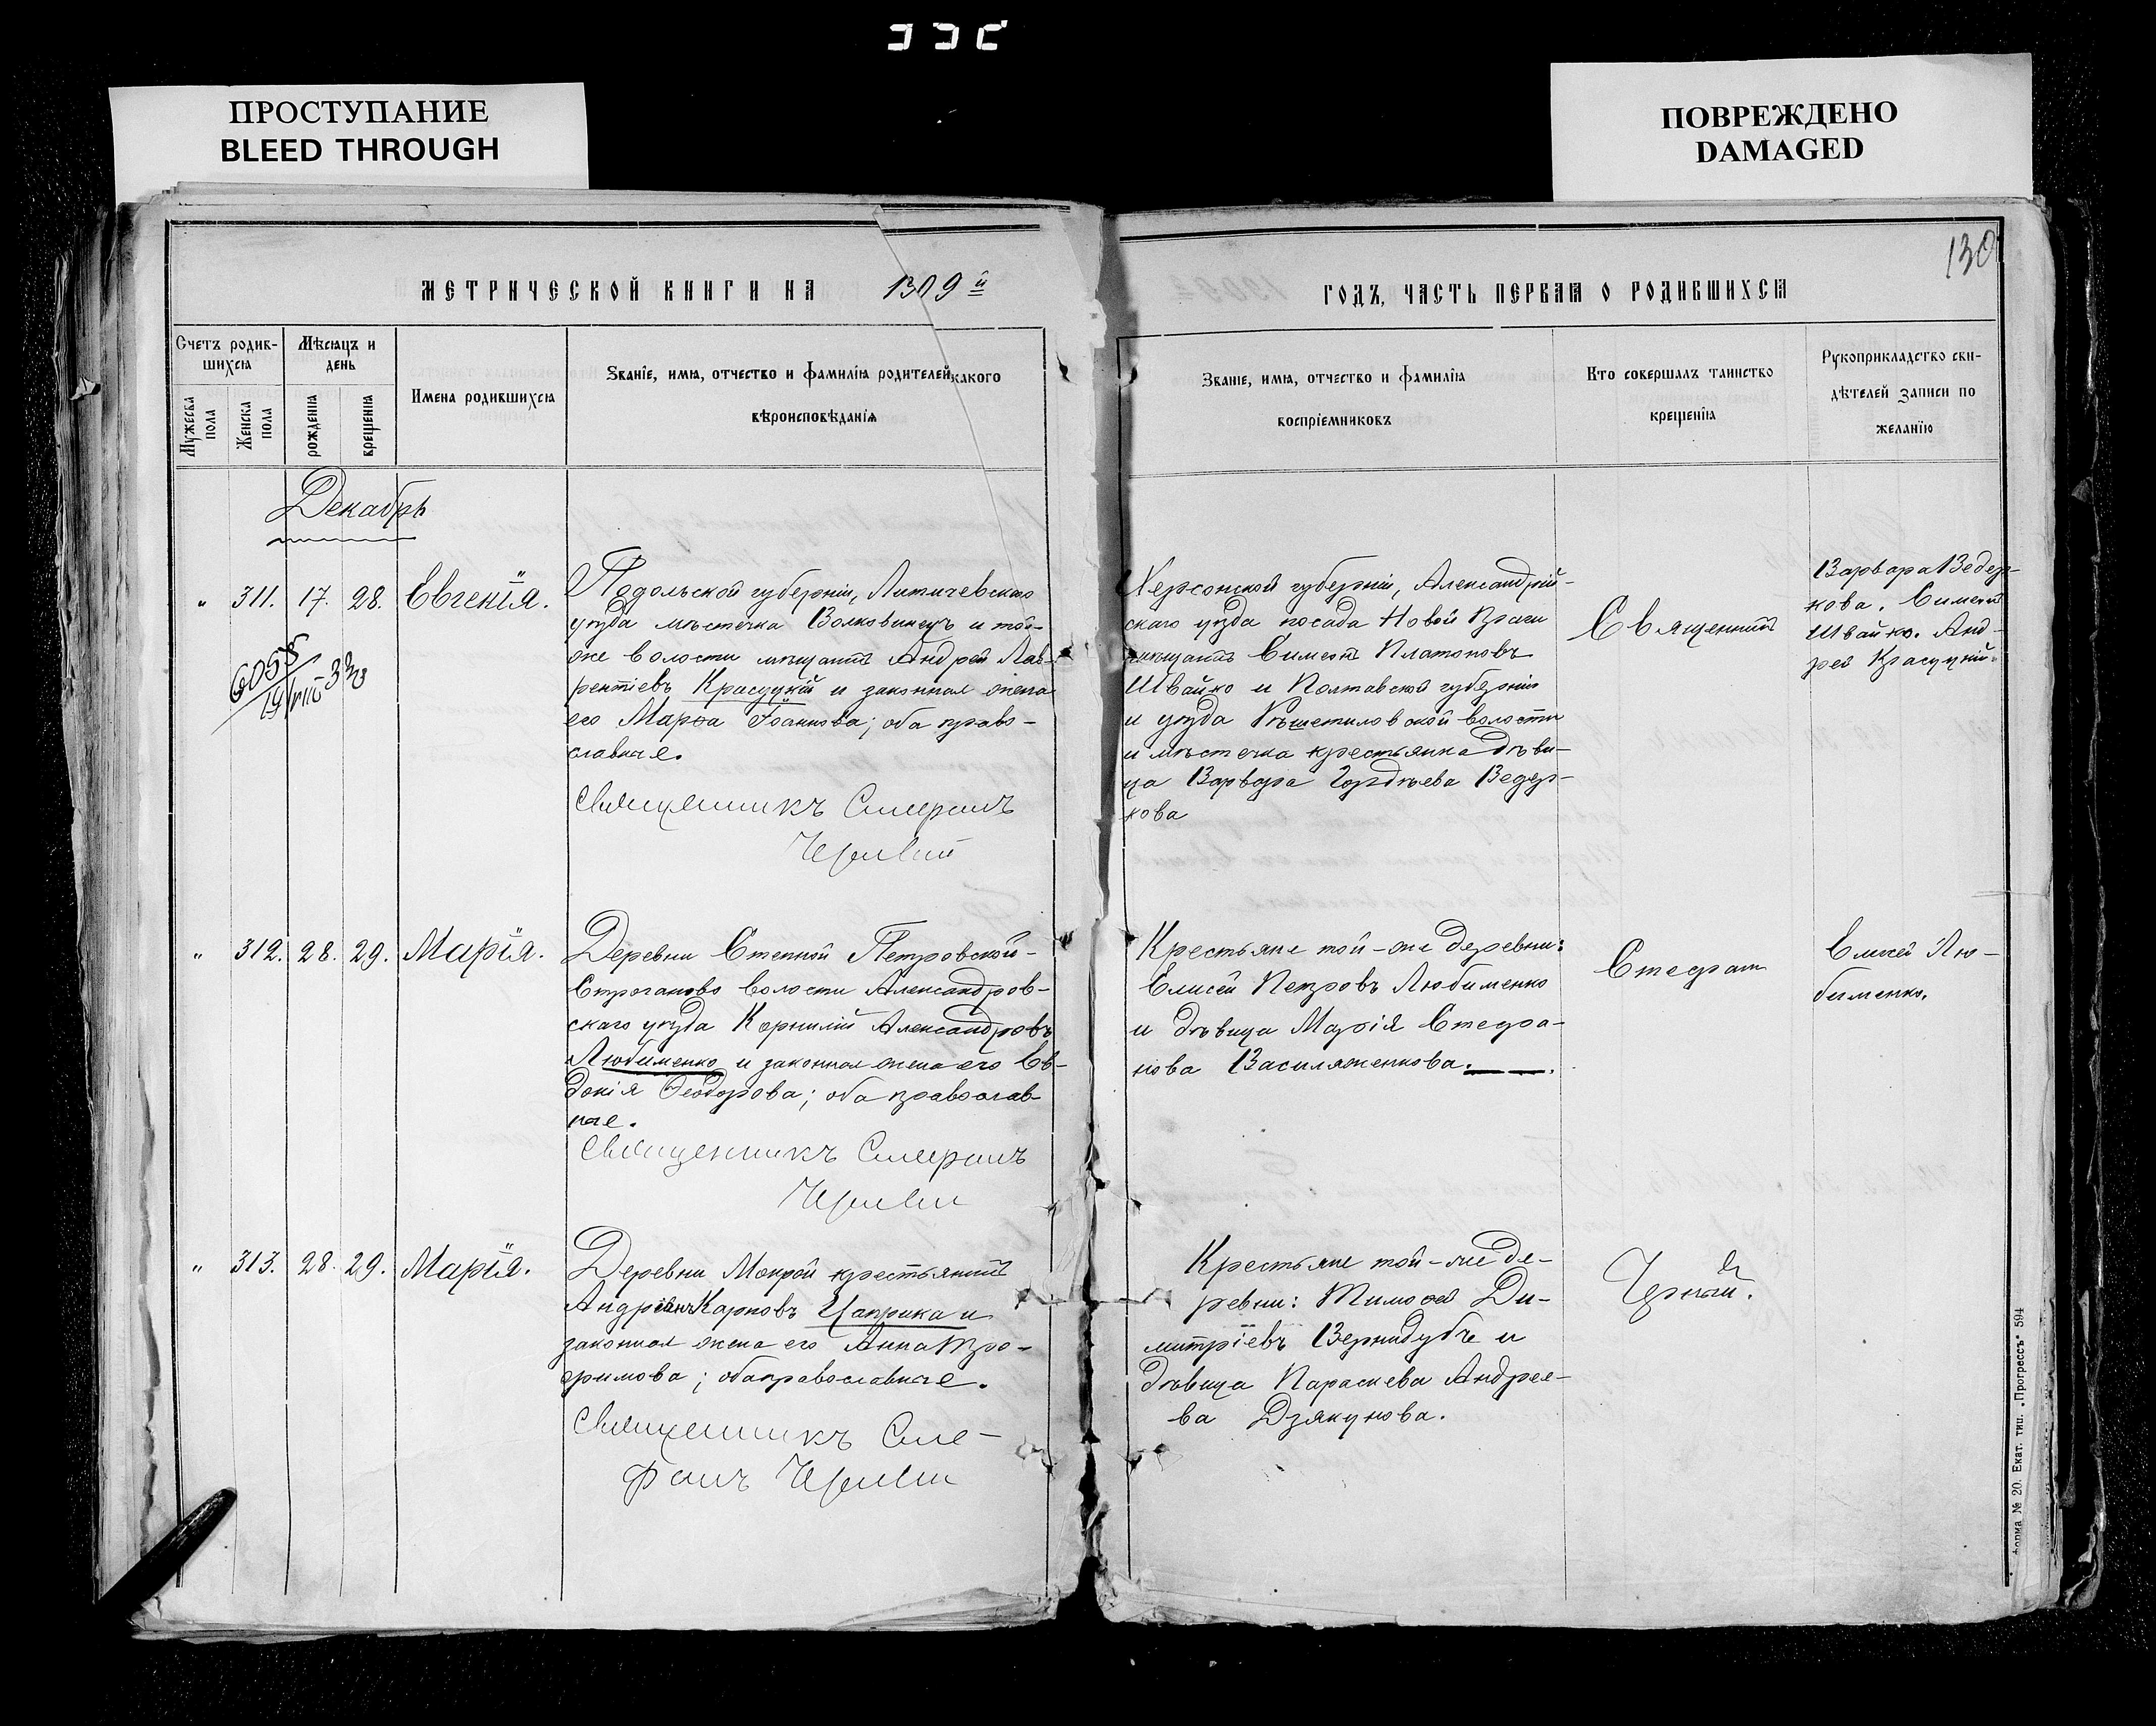 ПРОСТУПАНИЕ
BLEED THROUGH
ПОВРЕЖДЕНО
DAMAGED
130
МЕТРИЧЕСКОЙ КНИГИ НА 1909й
ГОДЪ, ЧАСТЬ ПЕРВАЯ О РОДИВШИХСЯ
Счетъ родив-
шихся
Мужеска пола
Женска пола
Мѣсяцъ и
день
рожденія
крещенія
Имена родившихся
Званіе, имя, отчество и фамилія родителей какого
вѣроисповѣданія
Званіе, имя, отчество и фамилія
воспріемниковъ
Кто совершалъ таинство
крещенія
Рукоприкладство сви-
дѣтелей записи по
желанію
Декабрь
" 311. 17. 28. Евгенія.
6055
Подольской губерніи, Литичевскаго
уѣзда мѣстечка Волковинецъ и той-
же волости мѣщанинъ Андрей Лав-
рентіевъ Красуцкій и законная жена
его Марѳа Іоаннова; оба право-
славные.
Священникъ Стефанъ
Черный
Херсонской губерніи, Александрій-
скаго уѣзда посада Новой Праги
мѣщанинъ Симеонъ Платоновъ
Швайко и Полтавской губерніи
и уѣзда Рѣшетиловской волости
и мѣстечка крестьянка дѣви-
ца Варвара Гордѣева Ведер-
кова
Священникъ
Варвара Ведер-
кова. Симеонъ
Швайко. Анд-
рей Красуцкій.
" 312. 28. 29. Марія.
Деревни Степной Петровской-
Строганово волости Александров-
скаго уѣзда Корнилій Александровъ
Любименко и законная жена его Ев-
докія Ѳеодорова; оба православ-
ные.
Священникъ Стефанъ
Черный
Крестьяне той-же деревни:
Елисей Петровъ Любименко
и дѣвица Марія Стефа-
нова Василяженкова.
Стефанъ
Елисей Лю-
бименко.
" 313. 28. 29. Марія.
Деревни Мокрой крестьянинъ
Андріанъ Карповъ Цаприка и
законная жена его Анна Тро-
фимова; оба православные.
Священникъ Сте-
фанъ Черный
Крестьяне той-же де-
ревни: Тимоѳей Ди-
митріевъ Вернидубъ и
дѣвица Параскева Андрее-
ва Дзякунова.
Черный.
Форма № 20. Екат. тип. „Прогрессъ" 594